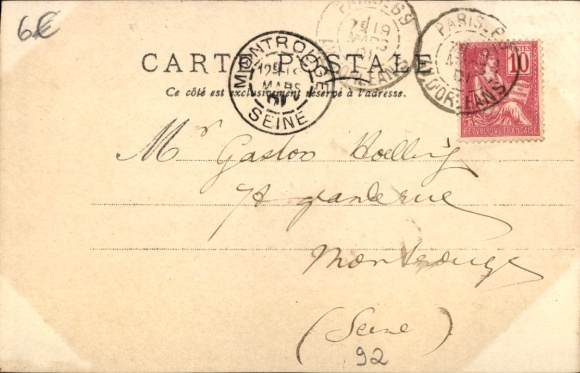 6€
CARTE POSTALE
Ce côté est exclusivement réservé à l'adresse.
MONTROUGE
MARS
01
SEINE
PARIS
19
MARS
01
10
POSTES
REPUBLIQUE FRANÇAISE
Mr Gaston
grande rue
Montrouge
(Seine)
92